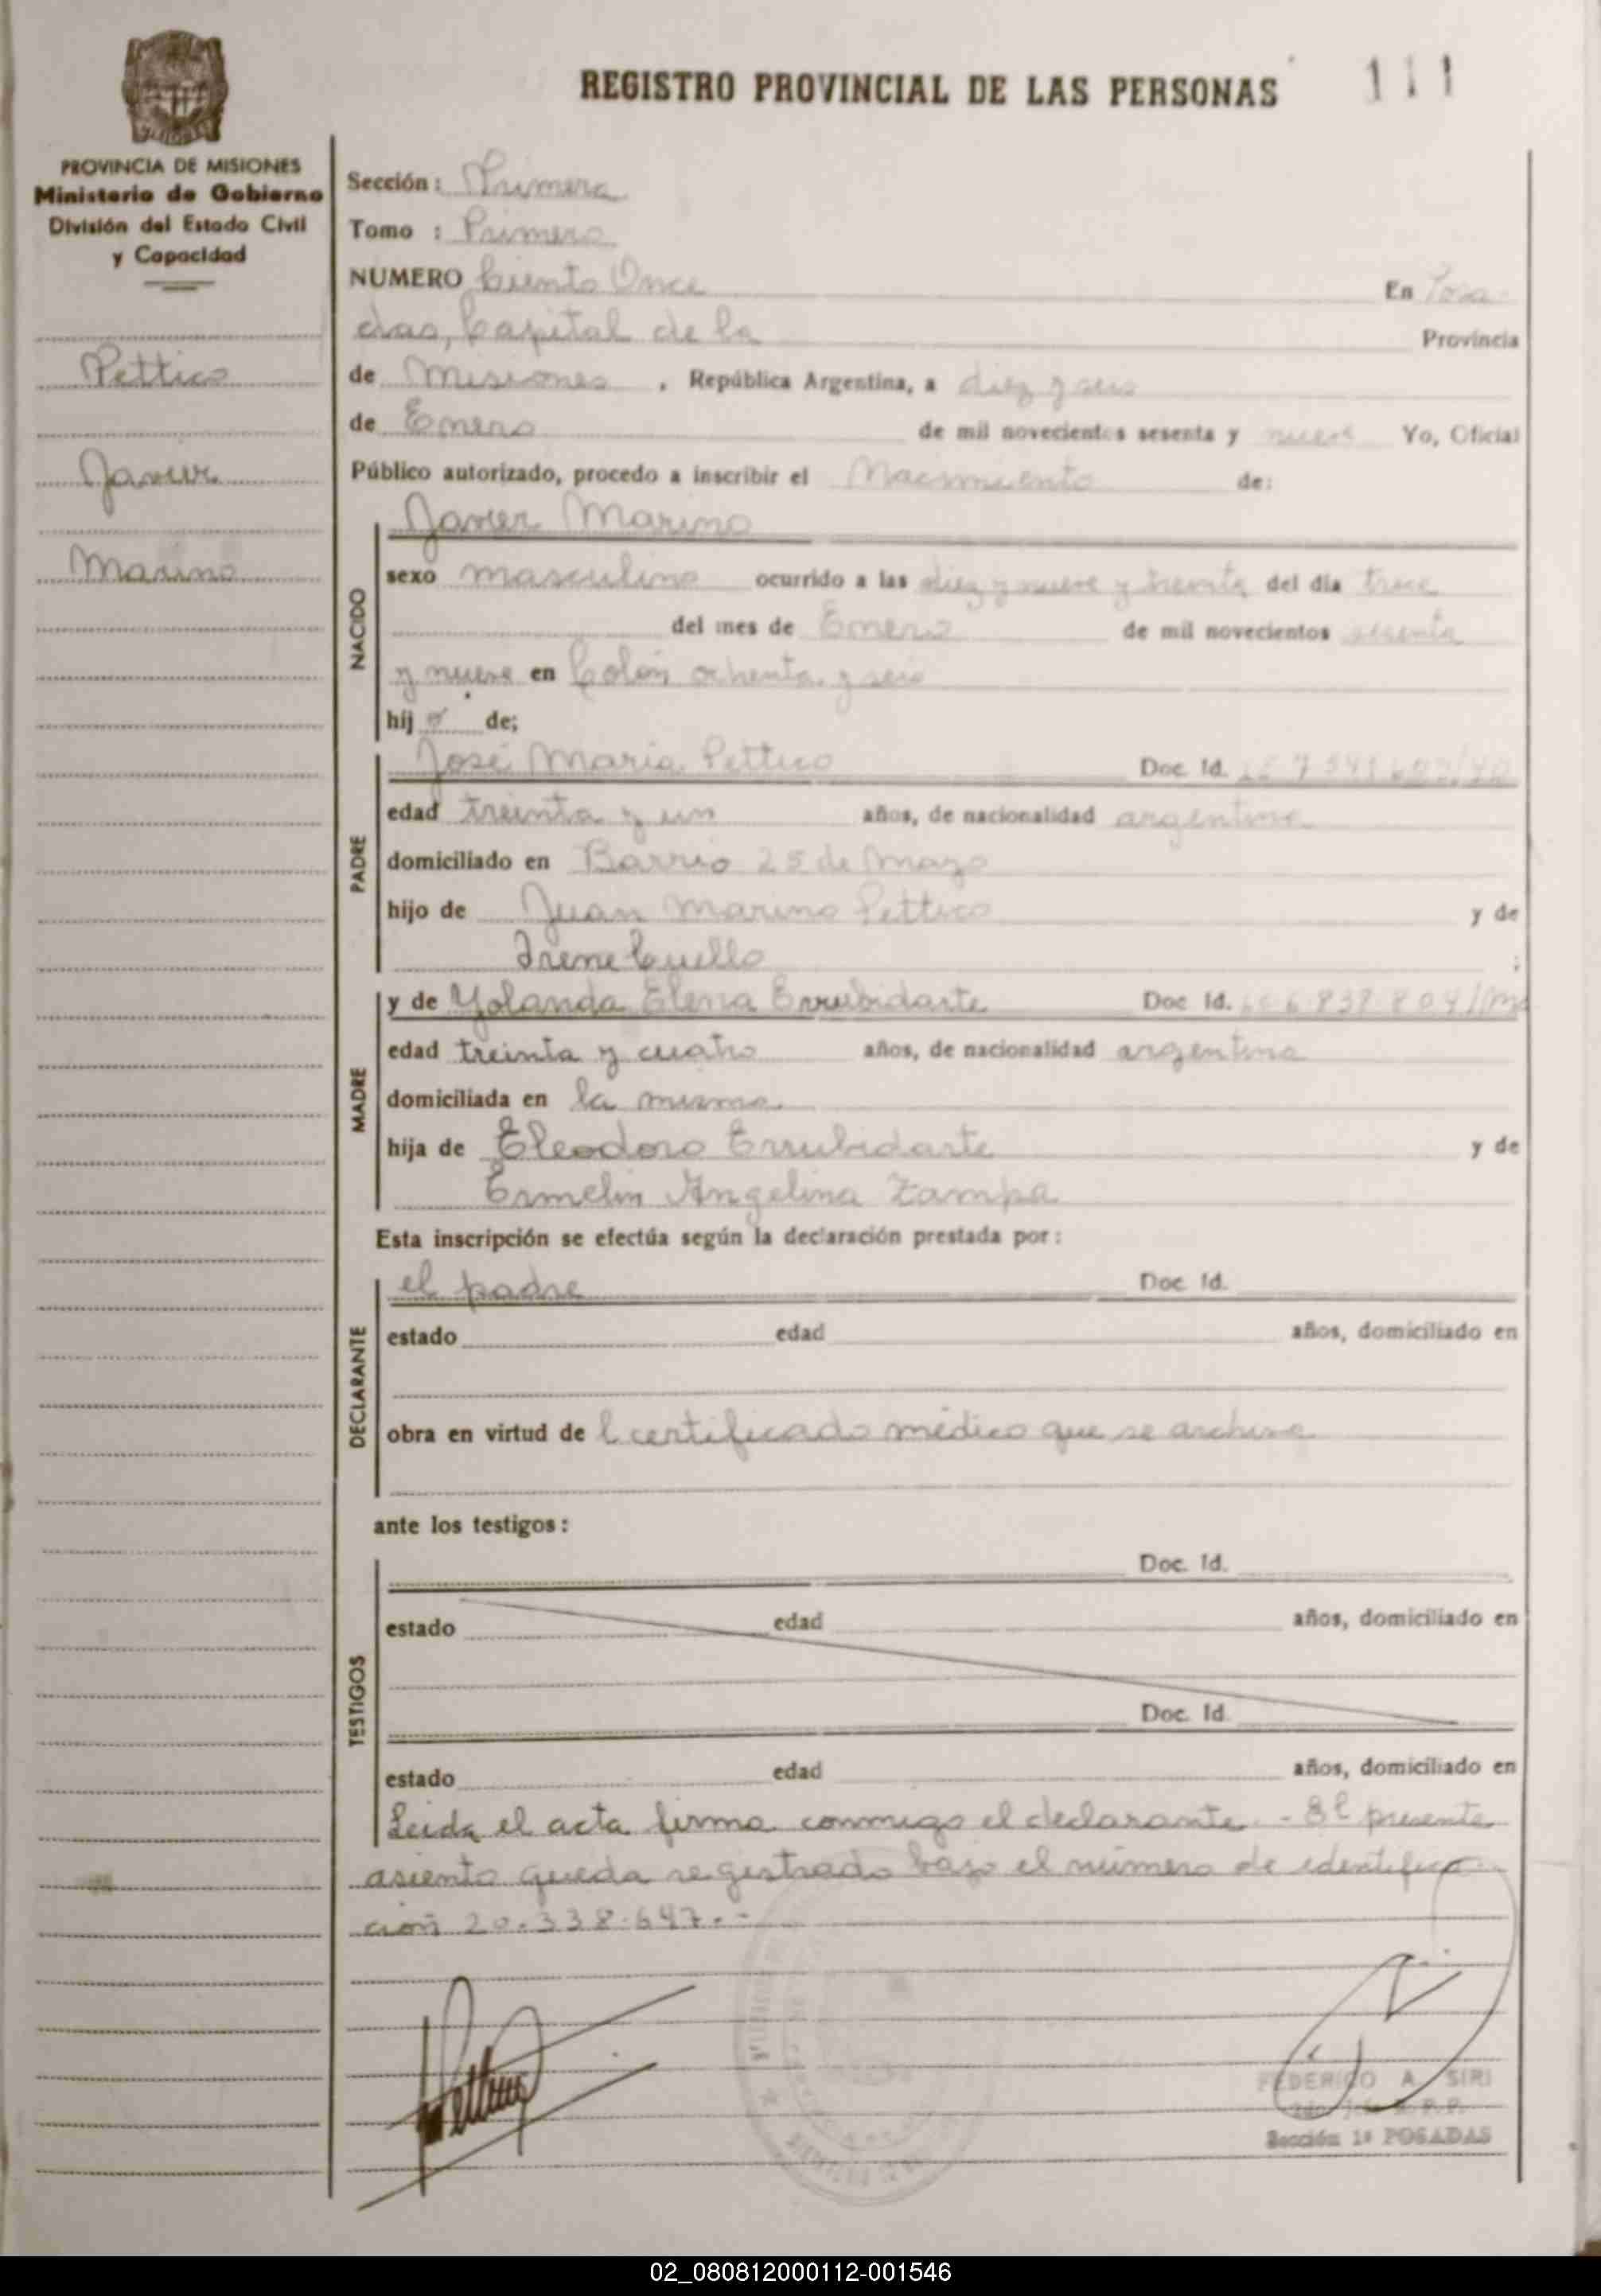 REGISTRO PROVINCIAL DE LAS PERSONAS 111
PROVINCIA DE MISIONES
Ministerio de Gobierno
División del Estado Civil
y Capacidad
Pettico
Javier
Marino
Sección: Primera
Tomo : Primero
NUMERO Ciento Once En Posa-
das, Capital de la Provincia
de Misiones, República Argentina, a diez y seis
de Enero de mil novecientos sesenta y nueve Yo, Oficial
Público autorizado, procedo a inscribir el Nacimiento de:
NACIDO
Javier Marino
sexo masculino ocurrido a las diez y nueve y treinta del dia trece
del mes de Enero de mil novecientos sesenta
y nueve en Colón ochenta y seis
hij o de;
PADRE
José María Pettico Doc. Id.
edad treinta y un años, de nacionalidad argentina
domiciliado en Barrio 25 de Mayo
hijo de Juan Marino Pettico y de
Irene Cuello ;
MADRE
y de Yolanda Elena Errubidarte Doc. Id.
edad treinta y cuatro años, de nacionalidad argentina
domiciliada en la misma
hija de Eleodoro Errubidarte y de
Ermelin Angelina Zampa
Esta inscripción se efectúa según la declaración prestada por:
DECLARANTE
el padre Doc. Id.
estado edad años, domiciliado en
obra en virtud de l certificado médico que se archiva
ante los testigos:
TESTIGOS
Doc. Id.
estado edad años, domiciliado en
Doc. Id.
estado edad años, domiciliado en
Leida el acta firma conmigo el declarante. - El presente
asiento queda registrado bajo el número de identifica-
ción 20.338.647.-
FEDERICO A. SIRI
Sección 1ª POSADAS
02_080812000112-001546